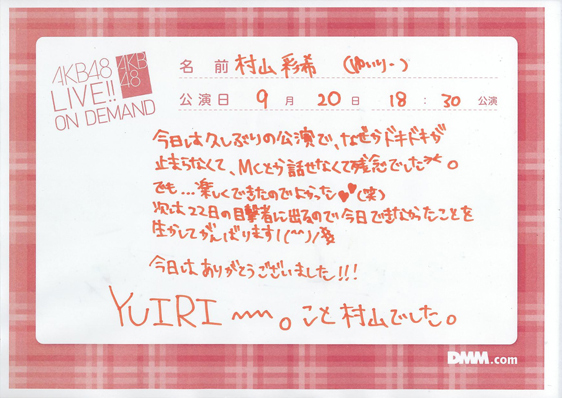 AKB48
LIVE!!
ON DEMAND
AKB
48
名 前 村山 彩希 (ゆいりー)
公演日 9 月 20 日 18 : 30 公演
今日は久しぶりの公演で、なぜかドキドキが
止まらなくて、MCとか話せなくて残念でした。
でも...楽しくできたのでよかった♥♥(笑)
次は22日の目撃者に出るので今日できなかったことを
生かしてがんばります!(^^)/
今日はありがとうございました!!!
YUIRI 〜。こと村山でした。
DMM.com